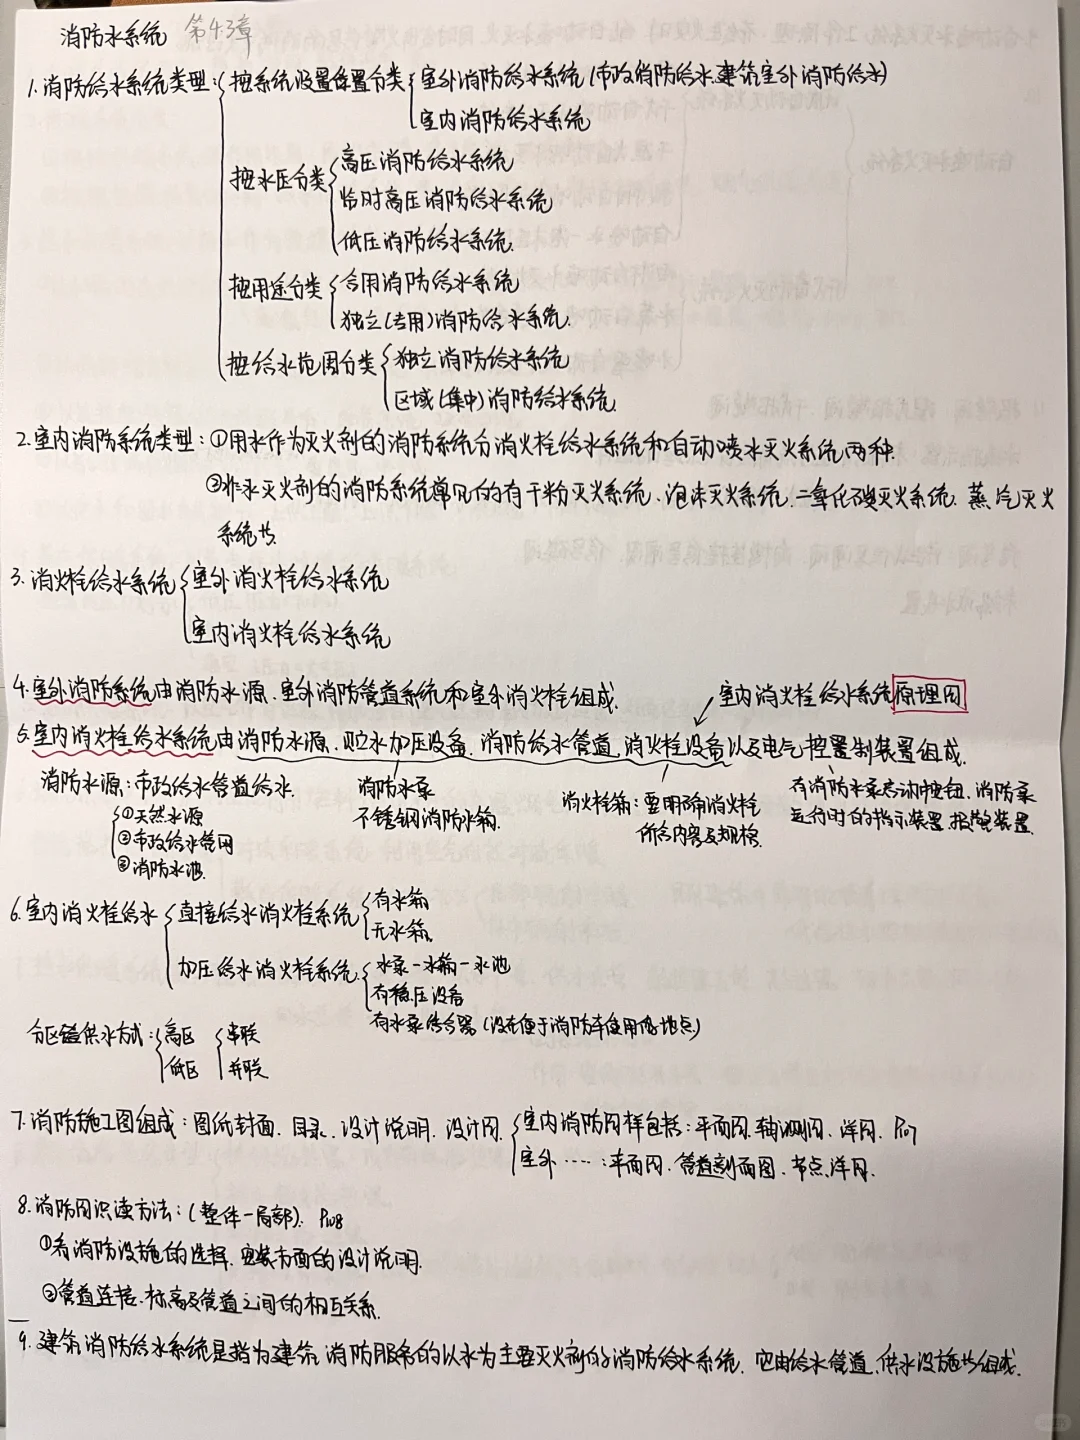 消防水系统 第43章
1.消防给水系统类型: 按系统设置位置分类 室外消防给水系统(市政消防给水.建筑室外消防给水)
室内消防给水系统
按水压分类 高压消防给水系统
临时高压消防给水系统
低压消防给水系统.
按用途分类 合用消防给水系统
独立(专用)消防给水系统.
按给水范围分类 独立消防给水系统
区域(集中)消防给水系统
2.室内消防系统类型: ①用水作为灭火剂的消防系统分消火栓给水系统和自动喷水灭火系统两种.
②非水灭火剂的消防系统常见的有干粉灭火系统、泡沫灭火系统.二氧化碳灭火系统.蒸汽灭火
系统等.
3.消火栓给水系统 室外消火栓给水系统
室内消火栓给水系统
4.室外消防系统由消防水源、室外消防管道系统和室外消火栓组成.
室内消火栓给水系统原理图
5.室内消火栓给水系统由消防水源、贮水加压设备.消防给水管道.消火栓设备以及电气控置制装置组成.
消防水源:市政给水管道给水.
①天然水源
②市政给水管网
③消防水池.
消防水泵
不锈钢消防水箱.
消火栓箱:要用除消火栓
所含内容及规格.
有消防水泵启动按钮.消防泵
运行时的指示装置.报警装置.
6.室内消火栓给水 直接给水消火栓系统 有水箱
无水箱.
加压给水消火栓系统 水泵-水箱-水池
有稳压设备
有水泵结合器(设在便于消防车使用的地点)
分区 供水方式: 高区 低区 串联 并联
7.消防施工图组成:图纸封面.目录.设计说明.设计图. 室内消防图样包括:平面图.轴测图.详图. P107
室外……:平面图.管道剖面图.节点详图.
8.消防图识读方法:(整体-局部). P108
①看消防设施的选择.安装方面的设计说明.
②管道连接.标高及管道之间的相互关系.
9.建筑消防给水系统是指为建筑消防服务的以水为主要灭火剂的消防给水系统.它由给水管道、供水设施等组成.